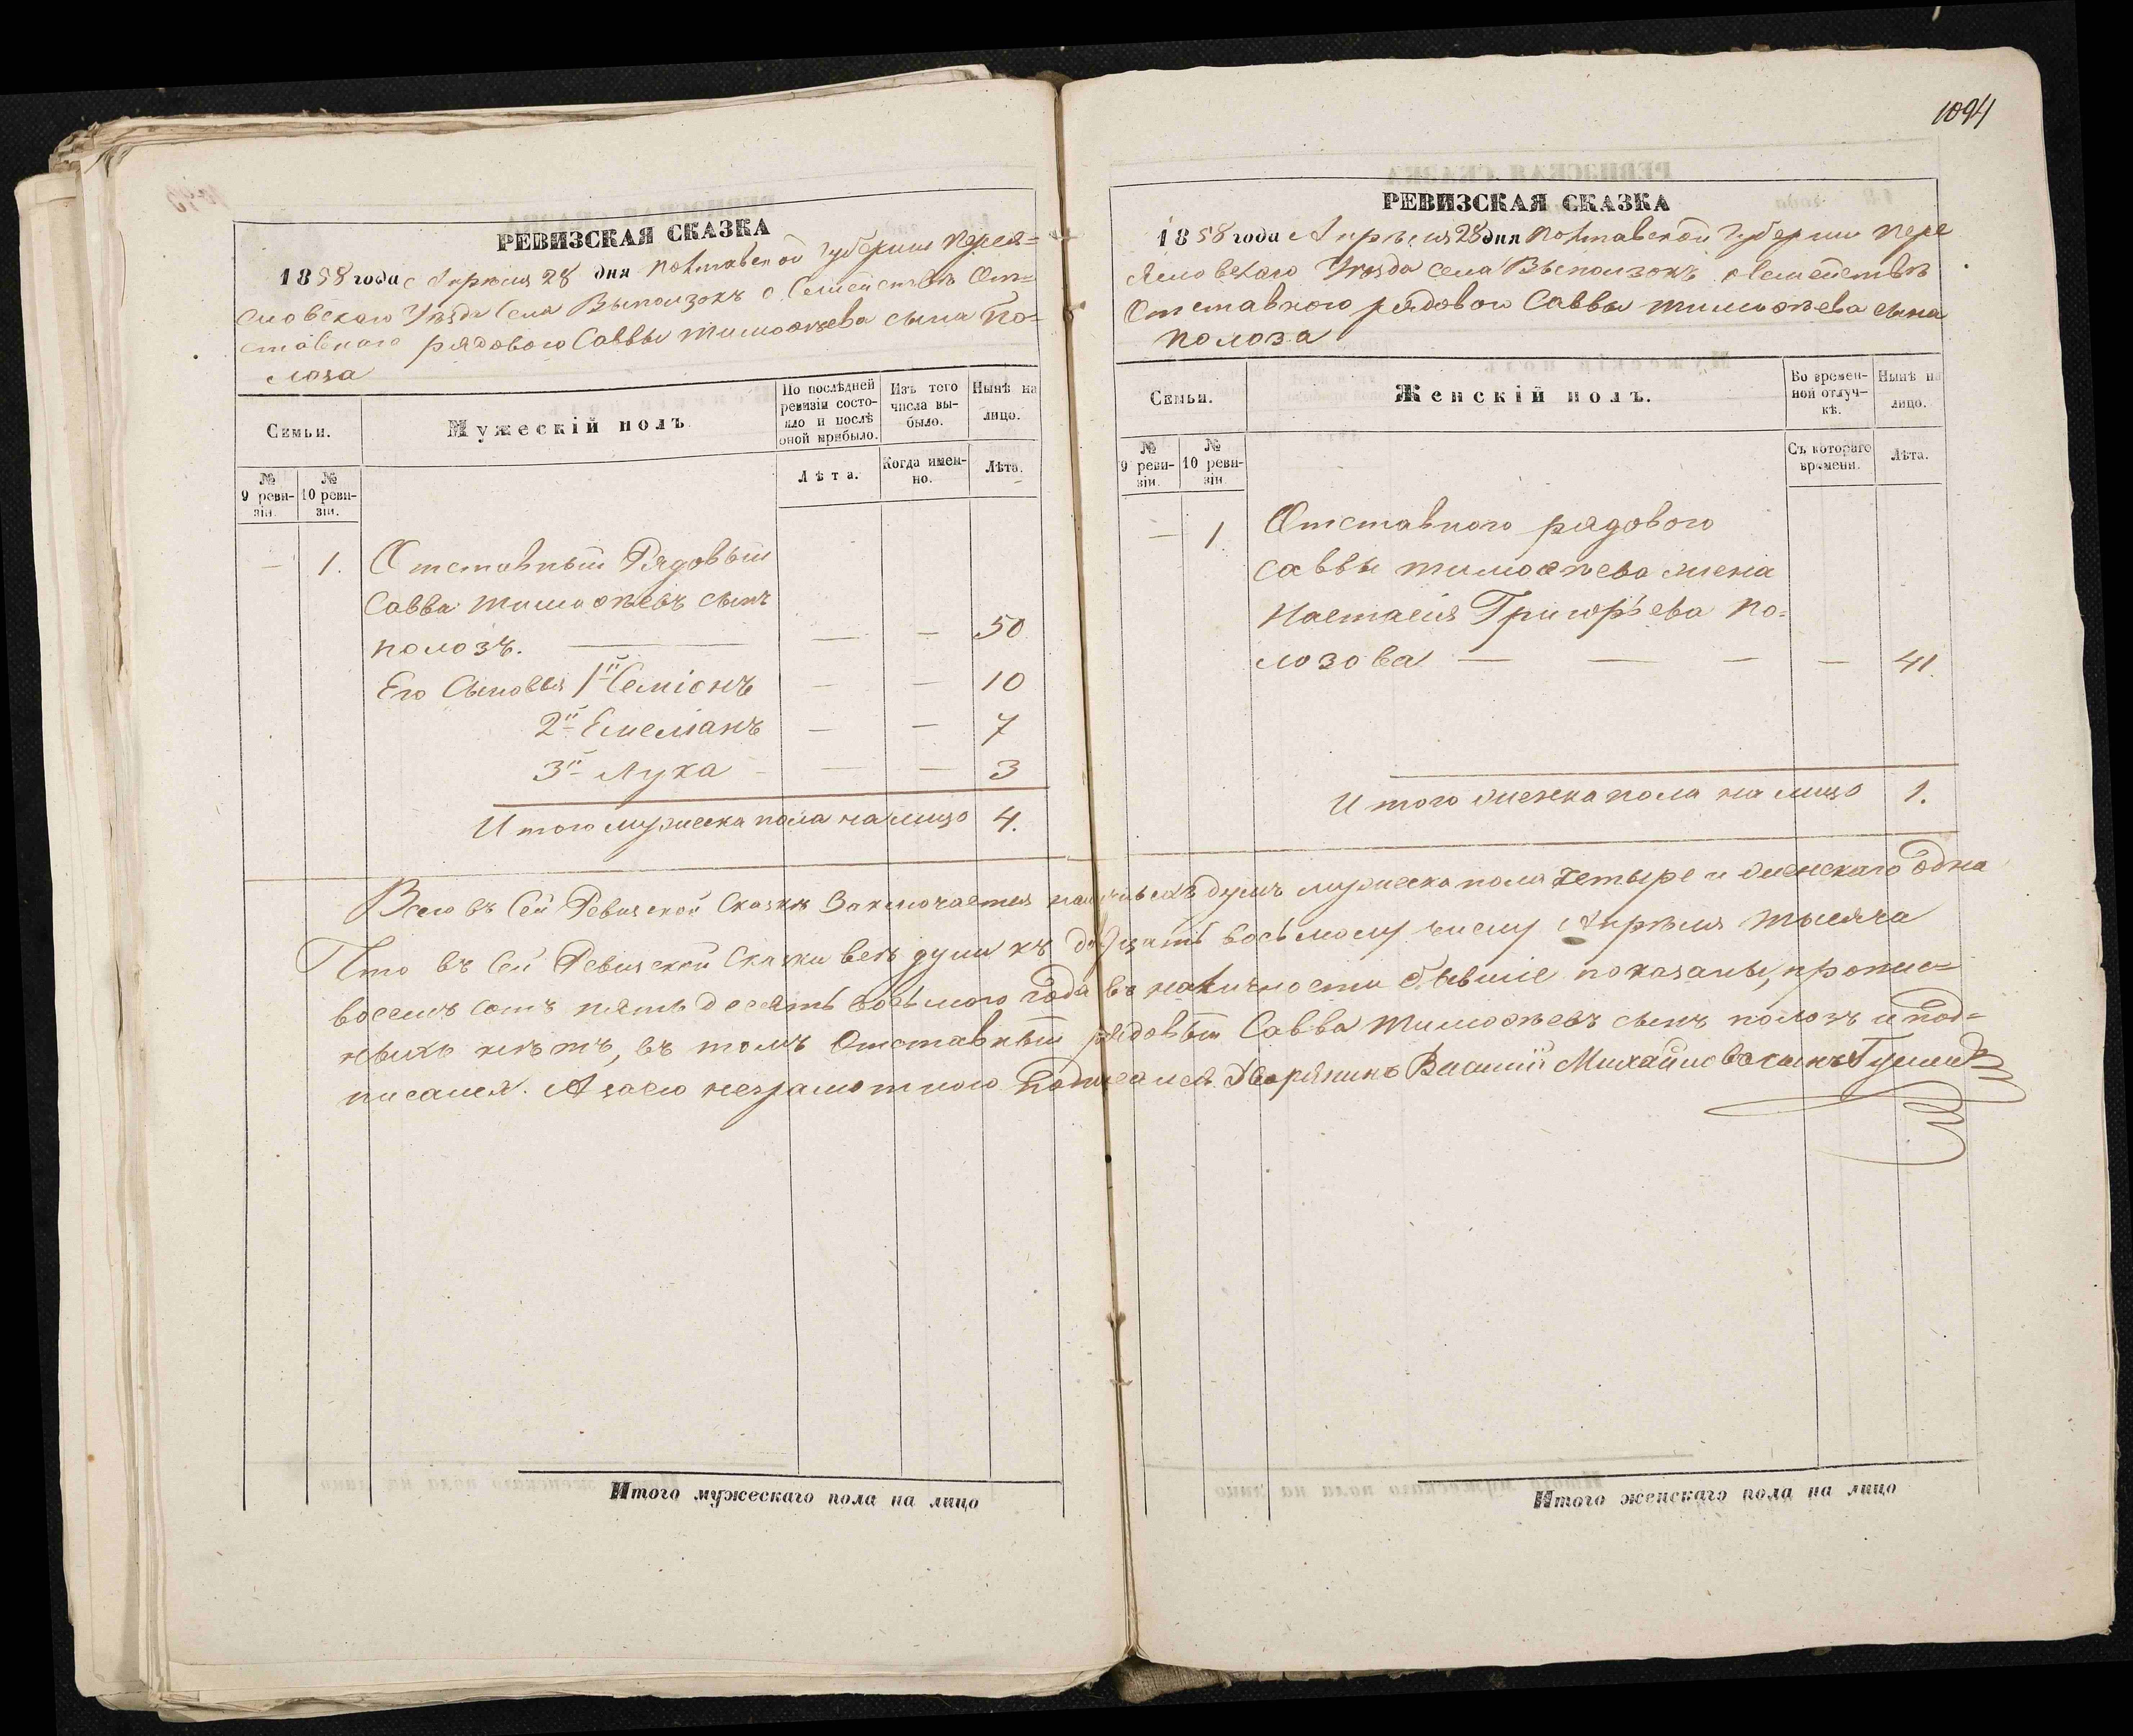 РЕВИЗСКАЯ СКАЗКА
1858 года Апрѣля 28 дня Полтавской Губерніи Перея=
словскаго Уѣзда Села Выползокъ о Семействѣ От=
ставнаго рядового Саввы Тимофѣева сына По=
лоза
Семьи.
Мужескій полъ
По послѣдней ревизіи состояло и послѣ оной прибыло.
Изъ того числа выбыло.
Нынѣ на лицо.
№ 9 ревизіи.
№ 10 ревизіи.
Лѣта.
Когда именно.
Лѣта.
— 1. Отставный Рядовый
Савва Тимофѣевъ сынъ
Полозъ. — — — 50
Его Сыновья 1й Семіонъ — — 10
2й Емеліанъ — — 7
3й Лука — — 3
Итого мужеска пола на лицо 4.
1094
РЕВИЗСКАЯ СКАЗКА
1858 года Апрѣля 28 дня Полтавской Губерніи Пере
ясловскаго Уѣзда села Выползокъ о Семействѣ
Отставного рядового Саввы Тимофѣева сына
Полоза
Семьи.
Женскій полъ.
Во временной отлучкѣ.
Нынѣ на лицо.
№ 9 ревизіи.
№ 10 ревизіи.
Съ котораго времени.
Лѣта.
— 1. Отставного рядового
Саввы Тимофѣева жена
Настасія Григорьева По-
лозова — — — — 41.
Итого женска пола на лицо 1.
Всего въ Сей Ревизской Сказкѣ Заключается наличныхъ душъ мужеска пола четыре и женскаго одна
Что въ Сей Ревизской Сказки всѣ души къ двадцать восьмому числу Апрѣля тысяча
восемь сотъ пять десятъ восьмого года въ наличности бывшіе показаны, пропис=
ныхъ нѣтъ, въ томъ Отставный рядовый Савва Тимофѣевъ сынъ Полозъ и под=
писался. А за его неграмотного подписался Дворянинъ Василій Михайловъ сынъ
Итого мужескаго пола на лицо
Итого женскаго пола на лицо